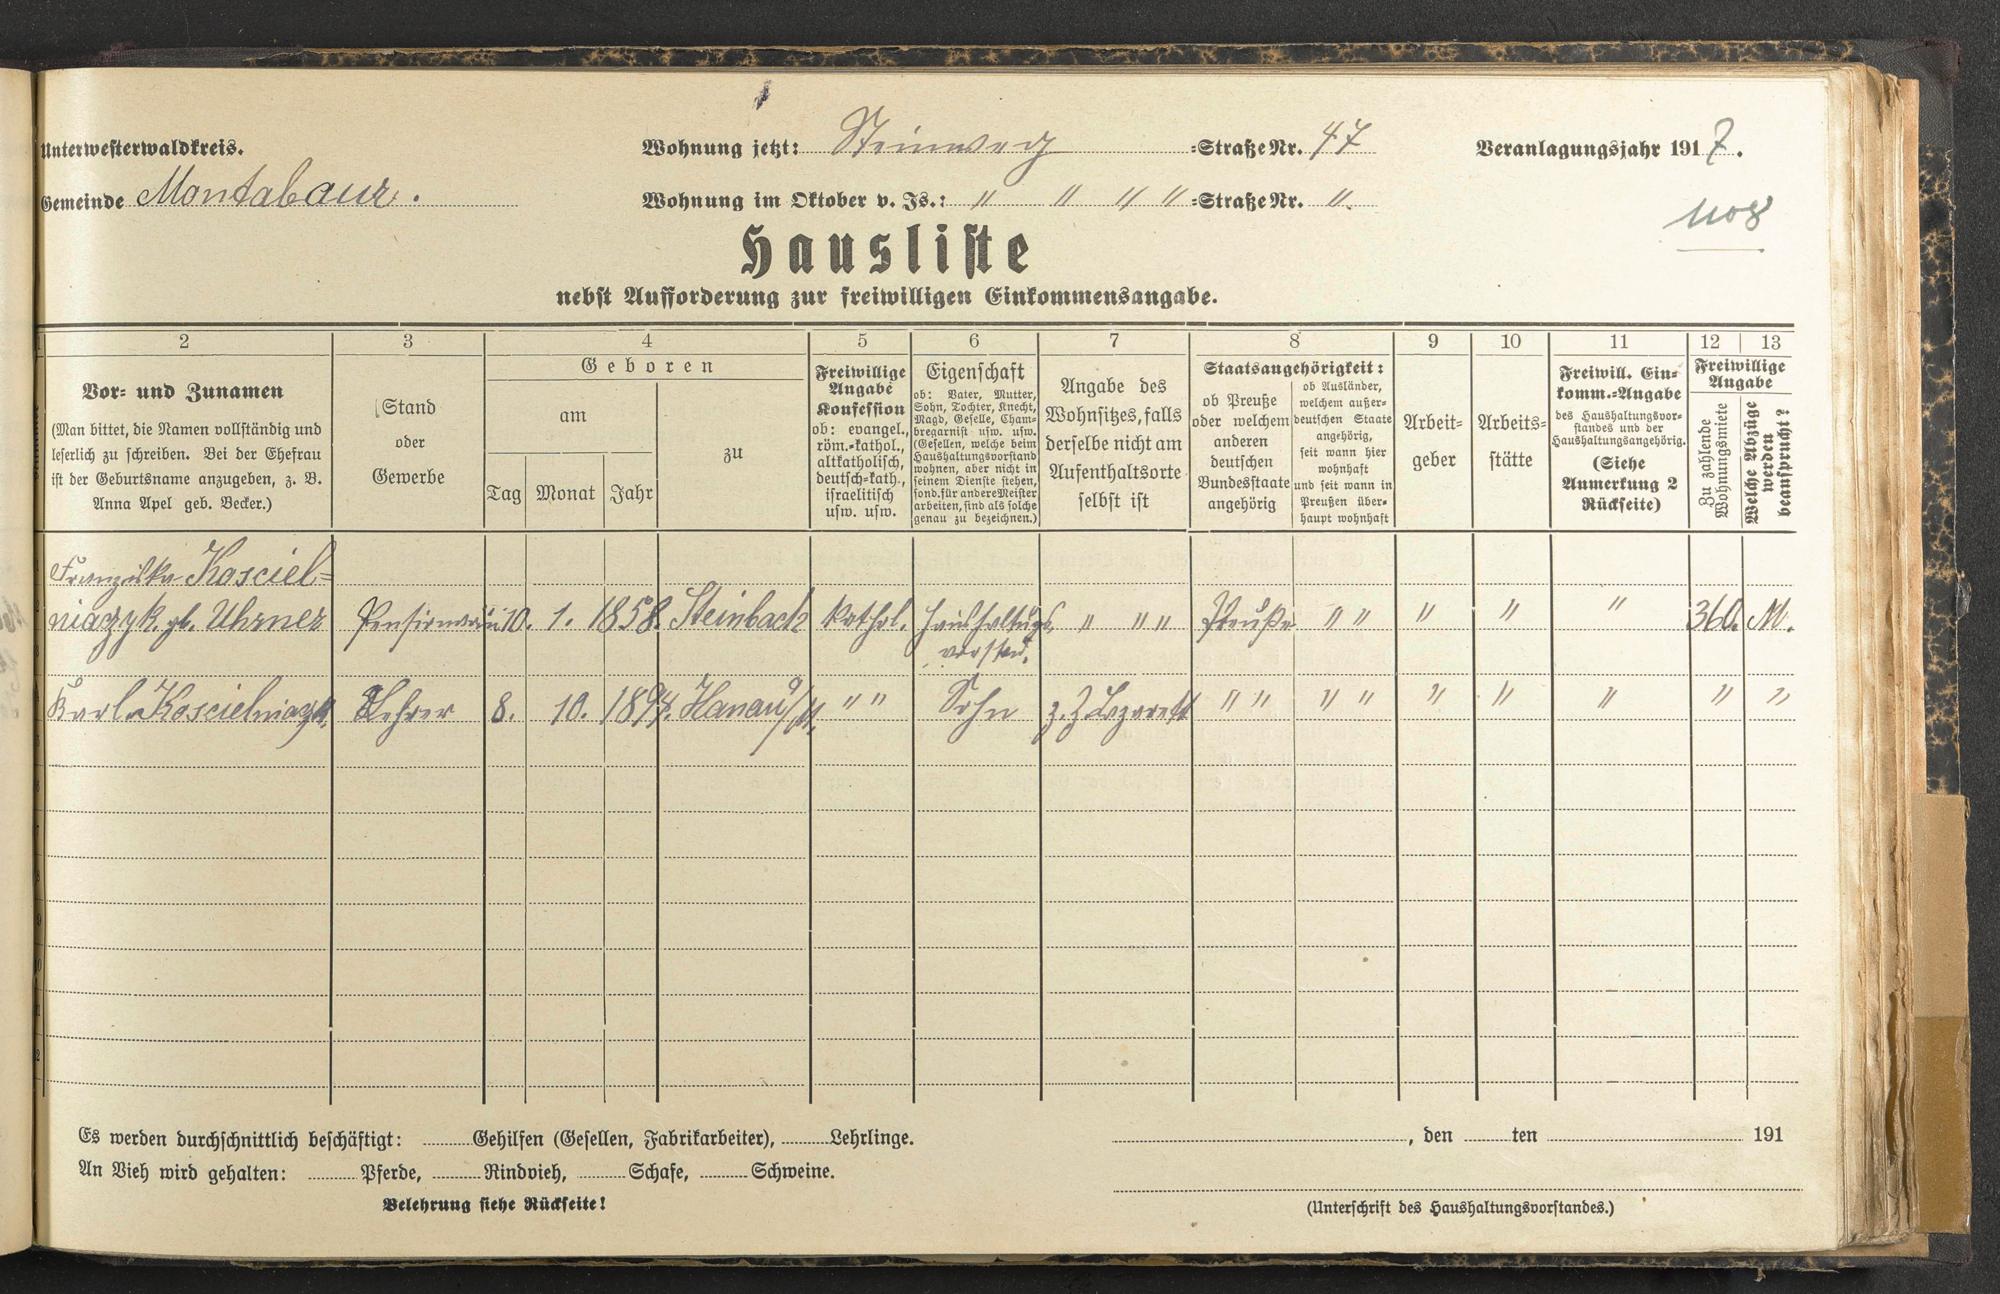 Unterwesterwaldkreis.
Wohnung jetzt: Steinweg =Straße Nr. 47
Veranlagungsjahr 1917.
Gemeinde Montabaur.
Wohnung im Oktober v. Js.: " " " " =Straße Nr. ".
1108
Hausliste
nebst Aufforderung zur freiwilligen Einkommensangabe.
2 3 4 5 6 7 8 9 10 11 12 13
Vor- und Zunamen
(Man bittet, die Namen vollständig und
leserlich zu schreiben. Bei der Ehefrau
ist der Geburtsname anzugeben, z. B.
Anna Apel geb. Becker.)
Stand
oder
Gewerbe
Geboren
am
Tag Monat Jahr
zu
Freiwillige
Angabe
Konfession
ob: evangel.,
röm.-kathol.,
altkatholisch,
deutsch-kath.,
israelitisch
usw. usw.
Eigenschaft
ob: Vater, Mutter,
Sohn, Tochter, Knecht,
Magd, Geselle, Cham-
bregarnist usw. usw.
(Gesellen, welche beim
Haushaltungsvorstand
wohnen, aber nicht in
seinem Dienste stehen,
sond. für andere Meister
arbeiten, sind als solche
genau zu bezeichnen.)
Angabe des
Wohnsitzes, falls
derselbe nicht am
Aufenthaltsorte
selbst ist
Staatsangehörigkeit:
ob Preuße
oder welchem
anderen
deutschen
Bundesstaate
angehörig
ob Ausländer,
welchem außer-
deutschen Staate
angehörig,
seit wann hier
wohnhaft
und seit wann in
Preußen über-
haupt wohnhaft
Arbeit-
geber
Arbeits-
stätte
Freiwill. Ein-
komm.-Angabe
des Haushaltungsvor-
standes und der
Haushaltungsangehörig.
(Siehe
Anmerkung 2
Rückseite)
Freiwillige
Angabe
Zu zahlende
Wohnungsmiete
Welche Abzüge
werden
beansprucht?
Franziska Kosciel=
niaczyk gb. Uhrner Pensionärin 10. 1. 1858. Steinbach kathol. Haushaltungs " " " Preuße " " " " " 360. M.
vorstand.
Karl Koscielniaczyk. Lehrer 8. 10. 1894. Hanau a/M. " " Sohn z. Z. Lazarett " " " " " " " " "
Es werden durchschnittlich beschäftigt: Gehilfen (Gesellen, Fabrikarbeiter), Lehrlinge.
, den ten 191
An Vieh wird gehalten: Pferde, Rindvieh, Schafe, Schweine.
Belehrung siehe Rückseite!
(Unterschrift des Haushaltungsvorstandes.)